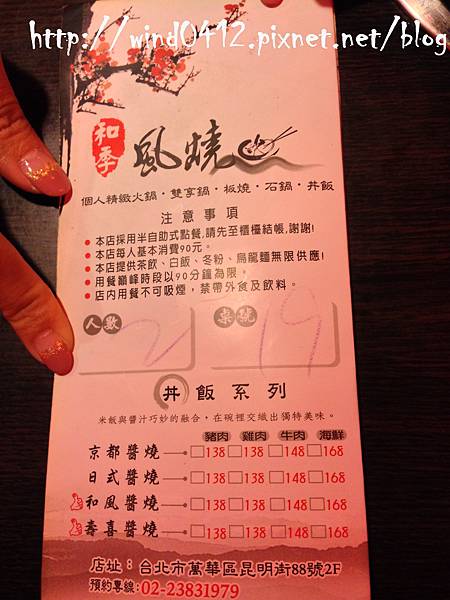 http://wind0412.pixnet.net/blog
和季
風燒
個人精緻火鍋・雙享鍋・板燒・石鍋・丼飯
注意事項
●本店採用半自助式點餐,請先至櫃檯結帳,謝謝!
●本店每人基本消費90元。
●本店提供茶飲、白飯、冬粉、烏龍麵無限供應!
●用餐巔峰時段以90分鐘為限。
●店內用餐不可吸煙,禁帶外食及飲料。
人數 2 桌號 19
丼飯系列
米飯與醬汁巧妙的融合,在碗裡交織出獨特美味。
豬肉 雞肉 牛肉 海鮮
京都醬燒 □138 □138 □148 □168
日式醬燒 □138 □138 □148 □168
和風醬燒 □138 □138 □148 □168
壽喜醬燒 □138 □138 □148 □168
店址:台北市萬華區昆明街88號2F
預約專線:02-23831979